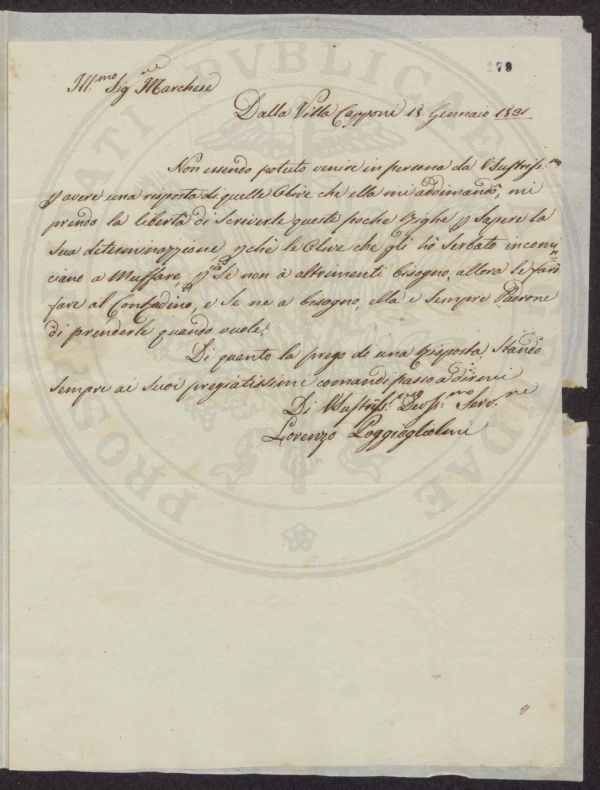 179
Ill.mo Sig.re Marchese
Dalla Villa Capponi 18. Gennaio 1831
Non essendo potuto venire in persona da VSustriss.mo
p avere una risposta di quelle Olive che ella mi addimandò, mi
prendo la libertà di scriverle queste poche righe p sapere la
sua determinazzione, pchè le Olive che gli hò serbato incomin
ciano a Muffare, p cio se non à altrimenti bisogno, allora le farò
fare al Contadino, e se ne a bisogno, ella è sempre Padrone
di prenderle quando vuole.
Di quanto la prego di una risposta, stando
sempre ai suoi pregiatissimi comandi passo a dirmi
Di VSustriss.mo Devotiss.mo Serv.re
Lorenzo
PROSPERITATI PVBLICAE AVGENDAE